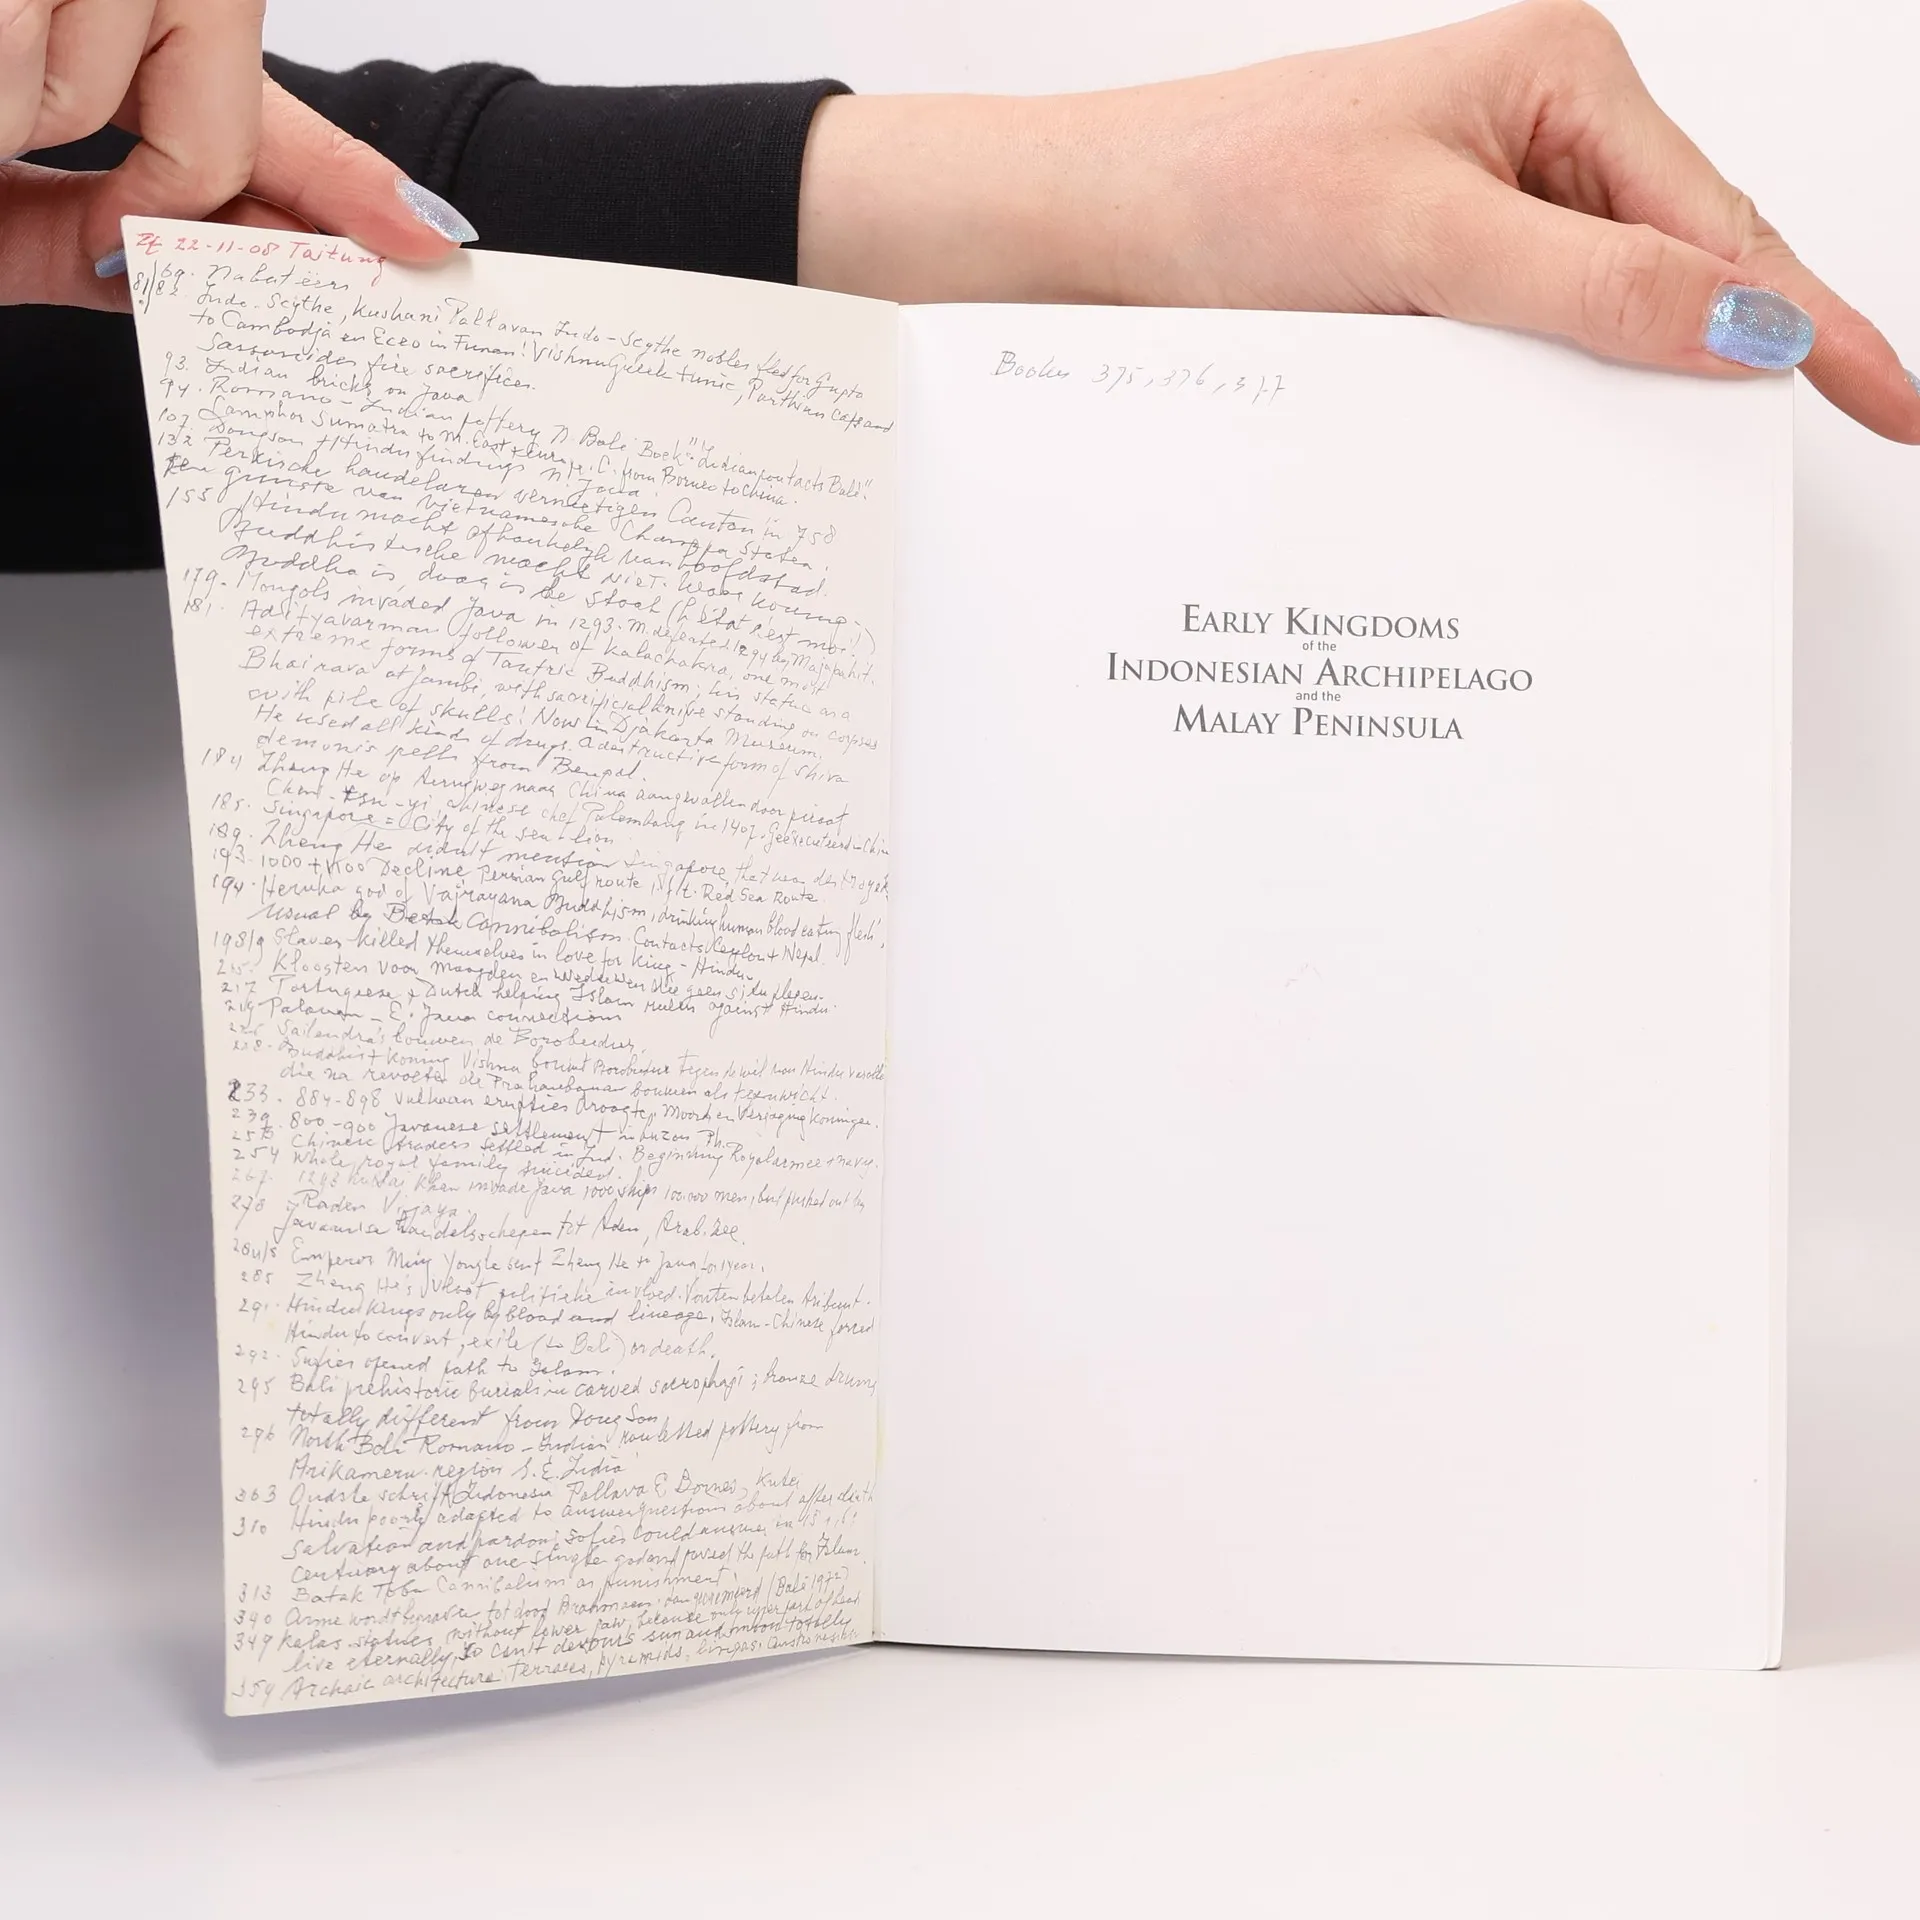 22-11-08 Taitung
69. Nabateërs
81/82. Indo-Scythe, Kushani Pallavan Indo-Scythe nobles fled for Gupta
to Cambodja en Eceo in Funan! Vishnu Greek tunic, Parthian caps and
Sassanides fire sacrifices.
93. Indian bricks on Java
94. Romano-Indian pottery N. Bali Boek "Indian contacts Bali"
107. Camphor Sumatra to M. East + Europe. C. from Borneo to China.
Dongson + Hindu findings N. Java
132 Perzische handelaren vernietigen Canton in 758
ten gunste van Vietnamesche Champa Staten.
155 Hindu macht afhankelyk van hoofdstad.
Buddhistische macht niet. Waar koning-
Buddha is, daar is de staat (l'état c'est moi!)
179. Mongols invaded Java in 1293. M. defeated 1294 by Majapahit.
181. Adityavarman follower of Kalachakra, one most
extreme forms of Tantric Buddhism; his statue as a
Bhairava at Jambi, with sacrificial knive standing on corpses
with pile of skulls! Now in Djakarta Museum.
He used all kinds of drugs. A destructive form of Shiva
demonic spells from Bengal.
184 Zheng He op terugweg naar China aangevallen door piraat
Chen-tsu-yi, chinese chef Palembang in 1407. Geëxecuteerd in China
185. Singapore = City of the sea-lion
189. Zheng He didn't mention Singapore, that was destroyed
193. 1000 + 1100 Decline Persian Gulf route, Red Sea Route.
194. Heruka god of Vajrayana Buddhism, drinking human blood eating flesh,
usual by Batak Cannibalism. Contacts Ceylon + Nepal.
198/9 Slaves killed themselves in love for King - Hindu
Kloosters voor maagden en weduwen die geen plegen.
217 Portuguese + Dutch helping Islam rulers against Hindu
219 Palavan - E. Java connections
Sailendra's bouwen de Borobudur.
228. Buddhist koning Vishnu bouwt Borobudur tegen de wil van Hindu
die na revolte de Prahambanan bouwen als tegenwicht.
233. 884-898 vulkaan erupties droogte, Moord en Verjaging Koningen.
239. 800-900 Javanese settlement in Luzon Ph.
Chinese traders settled in Ind. Beginning Royal armee + navy.
254 Whole royal family suicided.
267. 1293 Kublai Khan invade Java 1000 ships 100.000 men, but pushed out by
Raden Vijaya.
270 Javaanse handelsschepen tot Aden, Arab. Zee.
284/5 Emperor Ming Yongle sent Zheng He to Java for 1 year.
285 Zheng He's vloot politieke invloed. Vorsten betalen tribuut.
291. Hindu kings only by blood and lineage. Islam-Chinese forced
Hindu to convert, exile (to Bali) or death.
292. Sufies opened path to Islam.
295 Bali prehistoric burials in carved sarcophagi; bronze drums
totally different from Dong Son
296 North Bali Romano-Indian rouletted pottery from
Arikameru region S.E. India
303 Oudste schrift Indonesia Pallava E Borneo, Kutei
310 Hindu poorly adapted to answer questions about after death
salvation and pardon. Sofies could answer in 15, 16e
century about one single god and paved the path for Islam.
313 Batak Toba Cannibalism as punishment
340 Arme wordt begraven tot dood Brahmaan. Dan gecremeerd (Bali 1972)
349 Kalas-statues without lower jaw, because only upper part of head
live eternally, so can't devours sun and moon totally
354 Archaic architecture terraces, pyramids, lingas. Austronesian
Books 375, 376, 377
EARLY KINGDOMS
of the
INDONESIAN ARCHIPELAGO
and the
MALAY PENINSULA